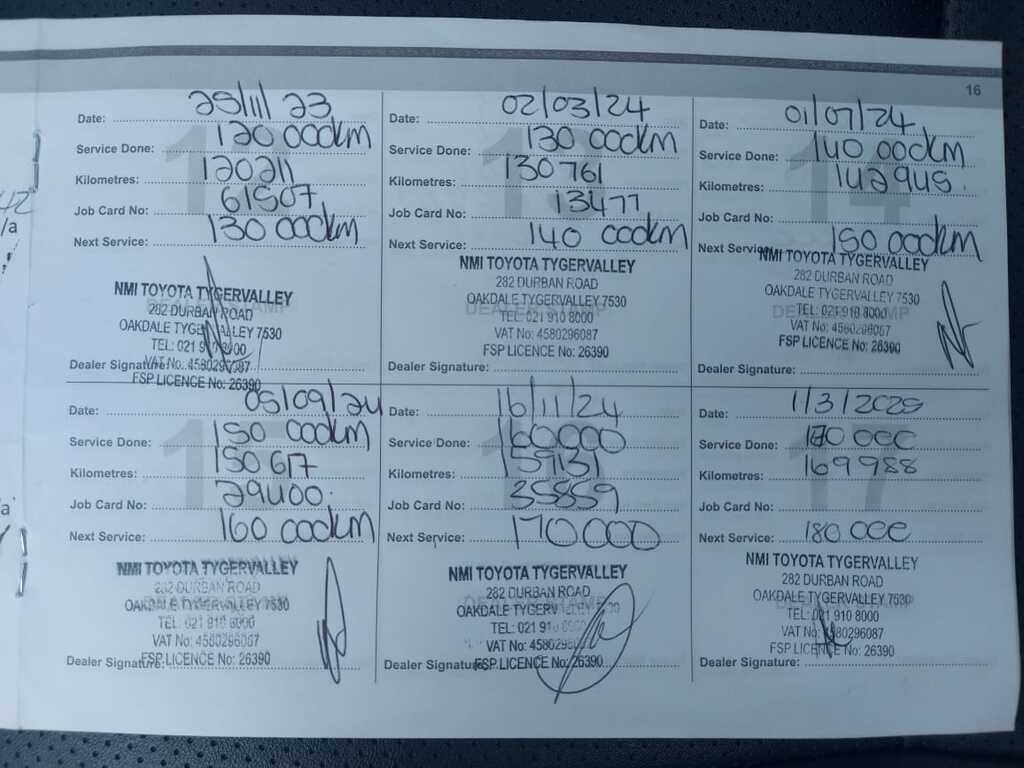 16
Date: 25/11/23
Service Done: 120 000km
Kilometres: 120211
Job Card No: 61507
Next Service: 130 000km
NMI TOYOTA TYGERVALLEY
282 DURBAN ROAD
OAKDALE TYGERVALLEY 7530
TEL: 021 910 8000
VAT No: 4580296087
Dealer Signature:
FSP LICENCE No: 26390
Date: 02/03/24
Service Done: 130 000km
Kilometres: 130761
Job Card No: 13477
Next Service: 140 000km
NMI TOYOTA TYGERVALLEY
282 DURBAN ROAD
OAKDALE TYGERVALLEY 7530
DEALER STAMP
TEL: 021 910 8000
VAT No: 4580296087
FSP LICENCE No: 26390
Dealer Signature:
Date: 01/07/24
Service Done: 140 000km
Kilometres: 142945
Job Card No:
Next Service: 150 000km
NMI TOYOTA TYGERVALLEY
282 DURBAN ROAD
OAKDALE TYGERVALLEY 7530
TEL: 021 910 8000
VAT No: 4580296087
FSP LICENCE No: 26390
Dealer Signature:
Date: 05/09/24
Service Done: 150 000km
Kilometres: 150617
Job Card No: 29400
Next Service: 160 000km
NMI TOYOTA TYGERVALLEY
282 DURBAN ROAD
OAKDALE TYGERVALLEY 7530
TEL: 021 910 8000
VAT No: 4580296087
Dealer Signature:
FSP LICENCE No: 26390
Date: 16/11/24
Service Done: 160000
Kilometres: 159131
Job Card No: 35859
Next Service: 170000
NMI TOYOTA TYGERVALLEY
282 DURBAN ROAD
OAKDALE TYGERVALLEY 7530
TEL: 021 910 8000
VAT No: 4580296087
Dealer Signature:
FSP LICENCE No: 26390
Date: 1/3/2025
Service Done: 170 000
Kilometres: 169988
Job Card No:
Next Service: 180 000
NMI TOYOTA TYGERVALLEY
282 DURBAN ROAD
OAKDALE TYGERVALLEY 7530
TEL: 021 910 8000
VAT No: 4580296087
FSP LICENCE No: 26390
Dealer Signature: